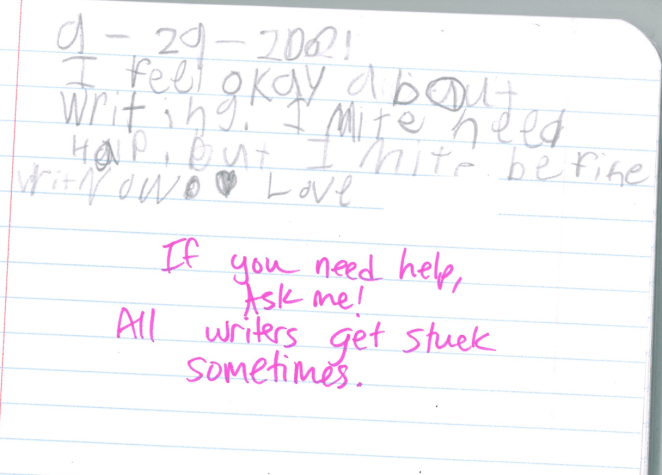 9-29-2021
I feel okay about
writing. I mite need
Help, but I mite be fine
writ Now. ♥ Love
If you need help,
Ask me!
All writers get stuck
sometimes.